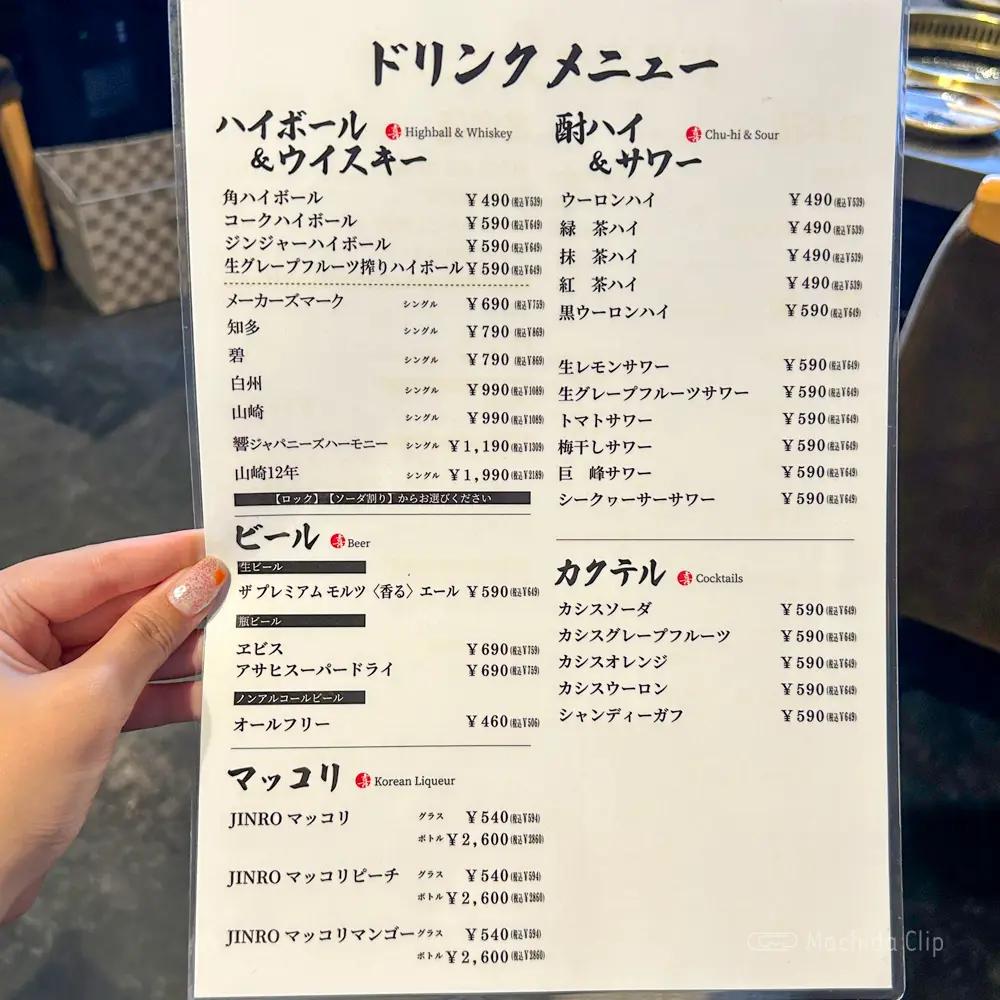 ドリンクメニュー
ハイボール
&ウイスキー
喜 Highball & Whiskey
角ハイボール ¥490(税込¥539)
コークハイボール ¥590(税込¥649)
ジンジャーハイボール ¥590(税込¥649)
生グレープフルーツ搾りハイボール ¥590(税込¥649)
メーカーズマーク シングル ¥690(税込¥759)
知多 シングル ¥790(税込¥869)
碧 シングル ¥790(税込¥869)
白州 シングル ¥990(税込¥1089)
山崎 シングル ¥990(税込¥1089)
響ジャパニーズハーモニー シングル ¥1,190(税込¥1309)
山崎12年 シングル ¥1,990(税込¥2189)
【ロック】【ソーダ割り】からお選びください
ビール 喜 Beer
生ビール
ザ プレミアム モルツ〈香る〉エール ¥590(税込¥649)
瓶ビール
ヱビス ¥690(税込¥759)
アサヒスーパードライ ¥690(税込¥759)
ノンアルコールビール
オールフリー ¥460(税込¥506)
マッコリ 喜 Korean Liqueur
JINRO マッコリ グラス ¥540(税込¥594)
ボトル ¥2,600(税込¥2860)
JINRO マッコリピーチ グラス ¥540(税込¥594)
ボトル ¥2,600(税込¥2860)
JINRO マッコリマンゴー グラス ¥540(税込¥594)
ボトル ¥2,600(税込¥2860)
酎ハイ
&サワー
喜 Chu-hi & Sour
ウーロンハイ ¥490(税込¥539)
緑 茶ハイ ¥490(税込¥539)
抹 茶ハイ ¥490(税込¥539)
紅 茶ハイ ¥490(税込¥539)
黒ウーロンハイ ¥590(税込¥649)
生レモンサワー ¥590(税込¥649)
生グレープフルーツサワー ¥590(税込¥649)
トマトサワー ¥590(税込¥649)
梅干しサワー ¥590(税込¥649)
巨 峰サワー ¥590(税込¥649)
シークヮーサーサワー ¥590(税込¥649)
カクテル 喜 Cocktails
カシスソーダ ¥590(税込¥649)
カシスグレープフルーツ ¥590(税込¥649)
カシスオレンジ ¥590(税込¥649)
カシスウーロン ¥590(税込¥649)
シャンディーガフ ¥590(税込¥649)
Machida Clip